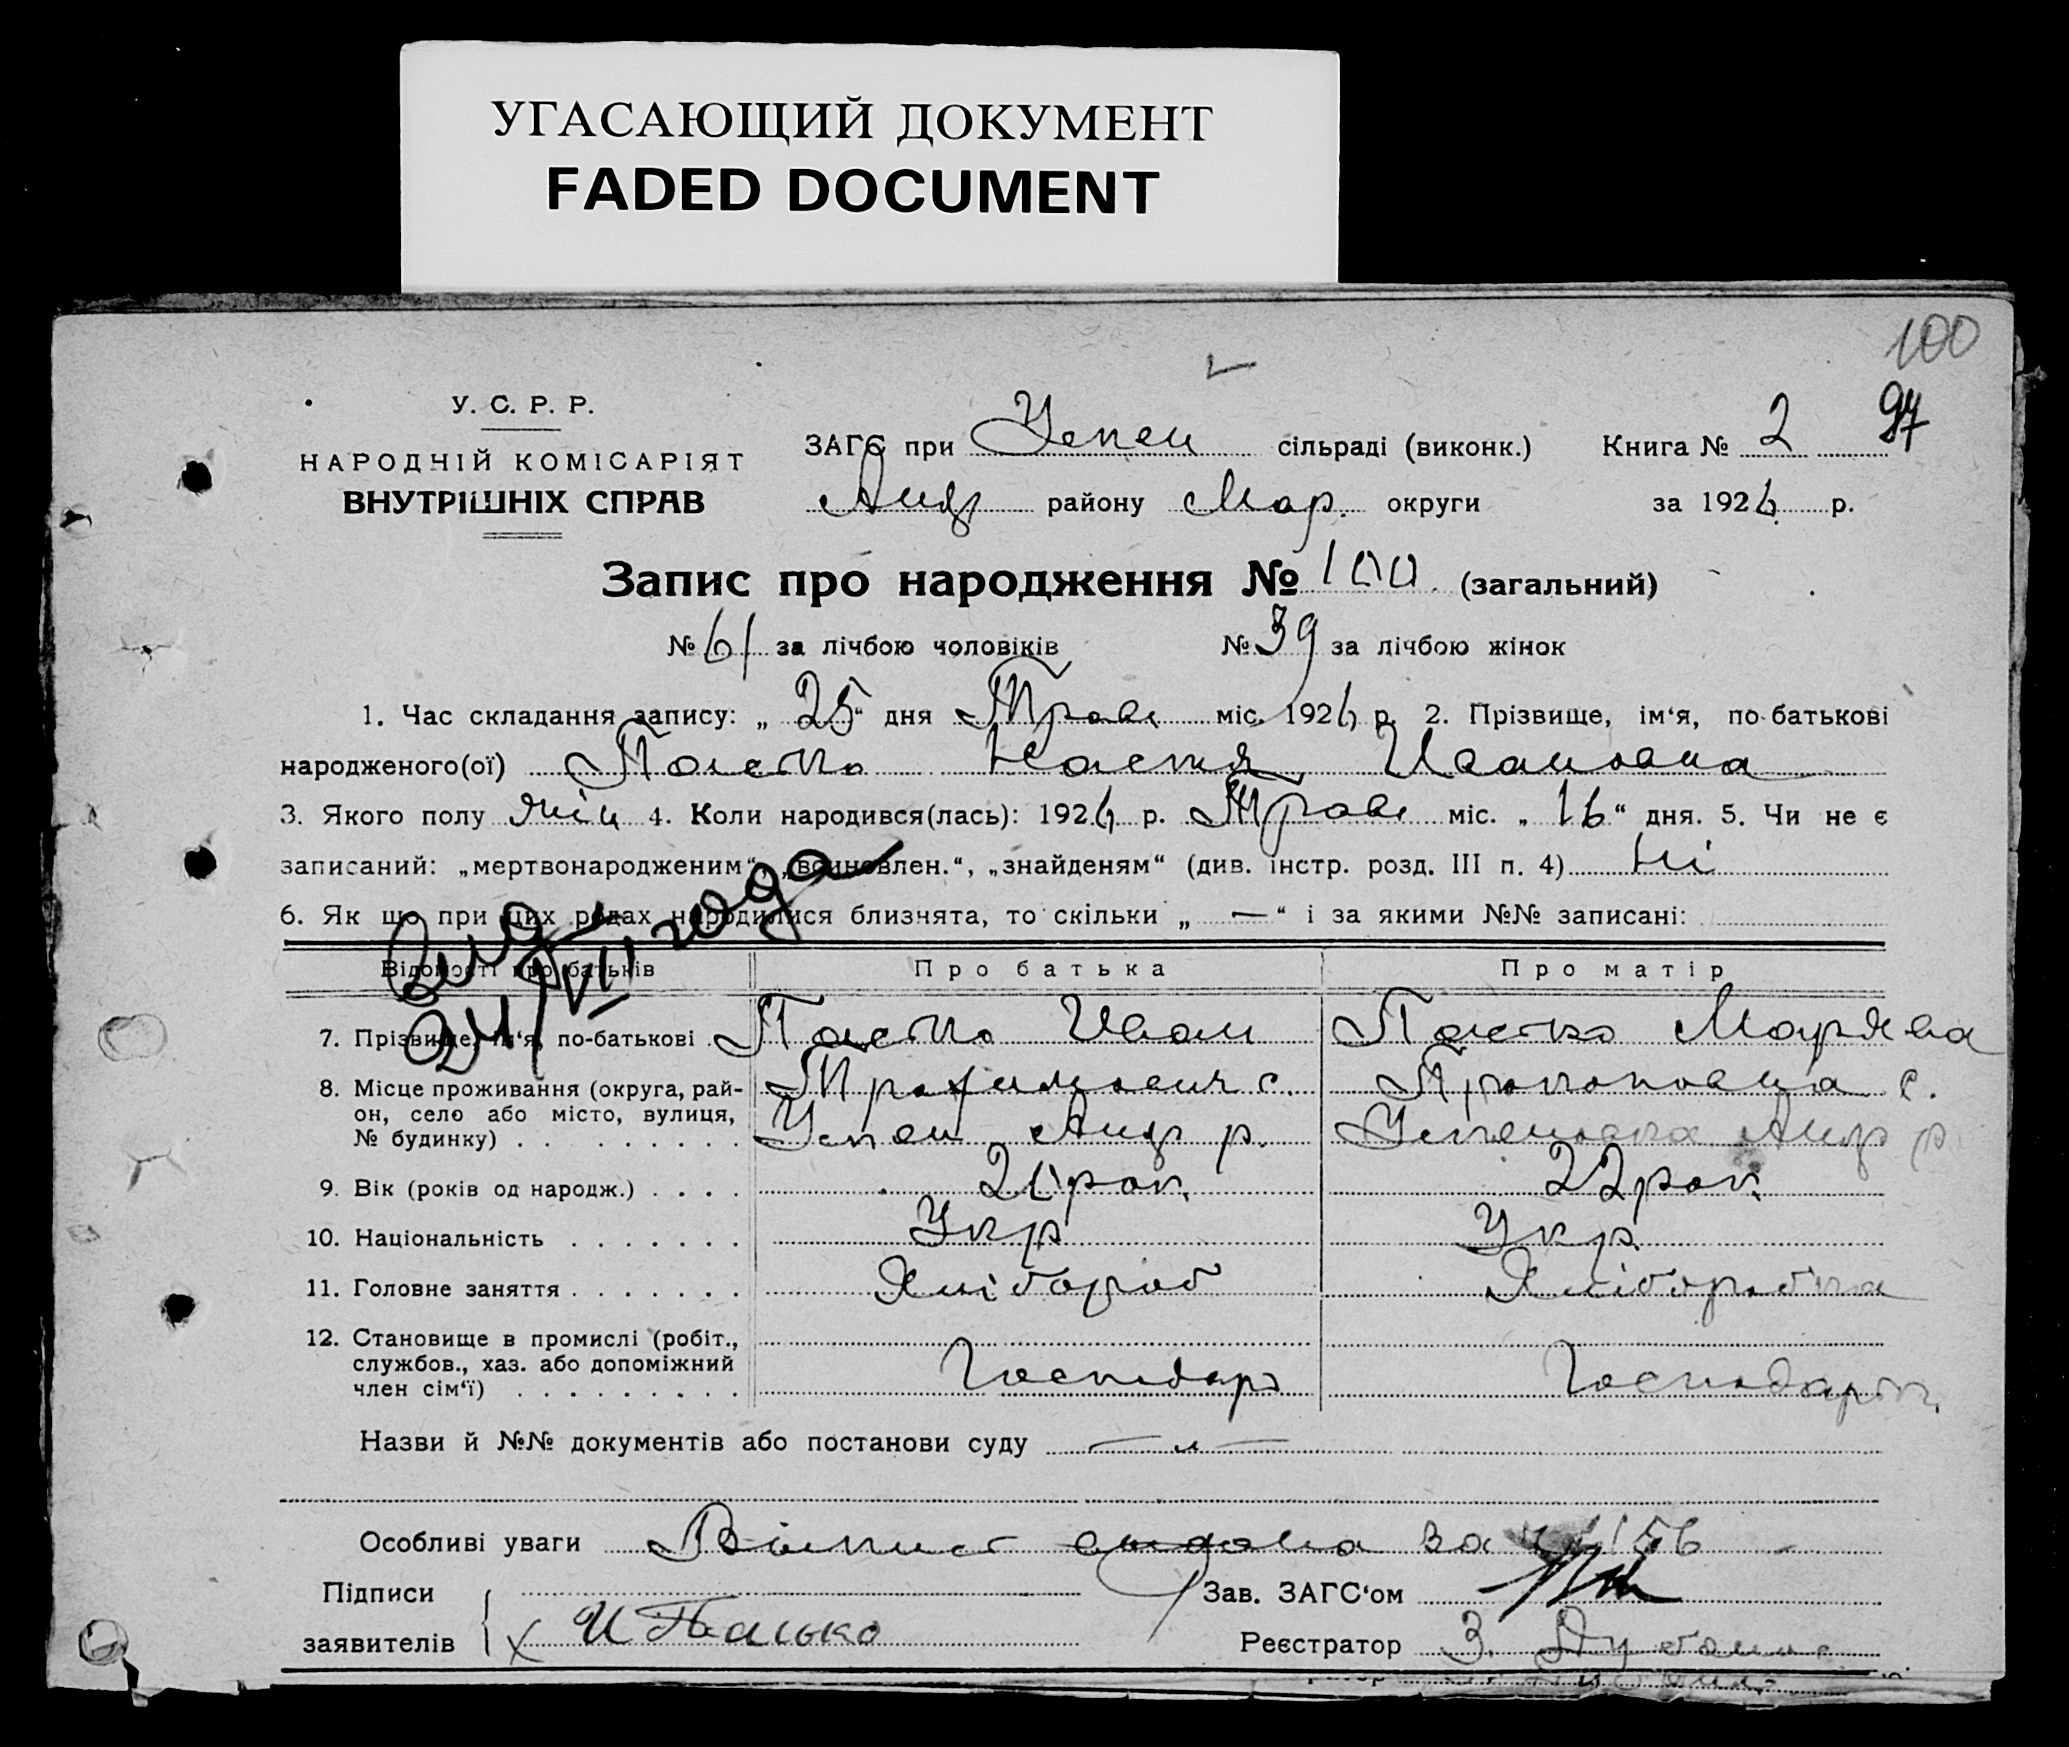 УГАСАЮЩИЙ ДОКУМЕНТ
FADED DOCUMENT
100
97
У. С. Р. Р.
НАРОДНІЙ КОМІСАРІЯТ
ВНУТРІШНІХ СПРАВ
ЗАГС при Успен сільраді (виконк.) Книга № 2
Андр району Мар. округи за 1926 р.
Запис про народження № 100 (загальний)
№ 61 за лічбою чоловіків № 39 за лічбою жінок
1. Час складання запису: „ 25 “ дня Трав міс. 1926 р. 2. Прізвище, ім‘я, по-батькові
народженого(ої) Настя Ивановна
3. Якого полу жін 4. Коли народився(лась): 1926 р. Трав міс. „ 16 “ дня. 5. Чи не є
записаний: „мертвонародженим“, „воиновлен.“, „знайденям“ (див. інстр. розд. III п. 4) Ні
6. Як що при цих родах народилися близнята, то скільки „ — “ і за якими №№ записані:
24/VII года
Відомості про батьків Про батька Про матір
7. Прізвище, ім‘я, по-батькові Иван
8. Місце проживання (округа, рай-
он, село або місто, вулиця,
№ будинку) Трофимович с. Прокоповна с.
Успен Андр р. Андр р
9. Вік (років од народж.) 22 рок.
10. Національність Укр Укр.
11. Головне заняття Хлібороб Хліборобка
12. Становище в промислі (робіт.,
службов., хаз. або допоміжний
член сім‘ї) Господарь Господарк.
Назви й №№ документів або постанови суду — „ —
Особливі уваги выдана за
Підписи
заявителів И Пасько
Зав. ЗАГС‘ом
Реєстратор З.